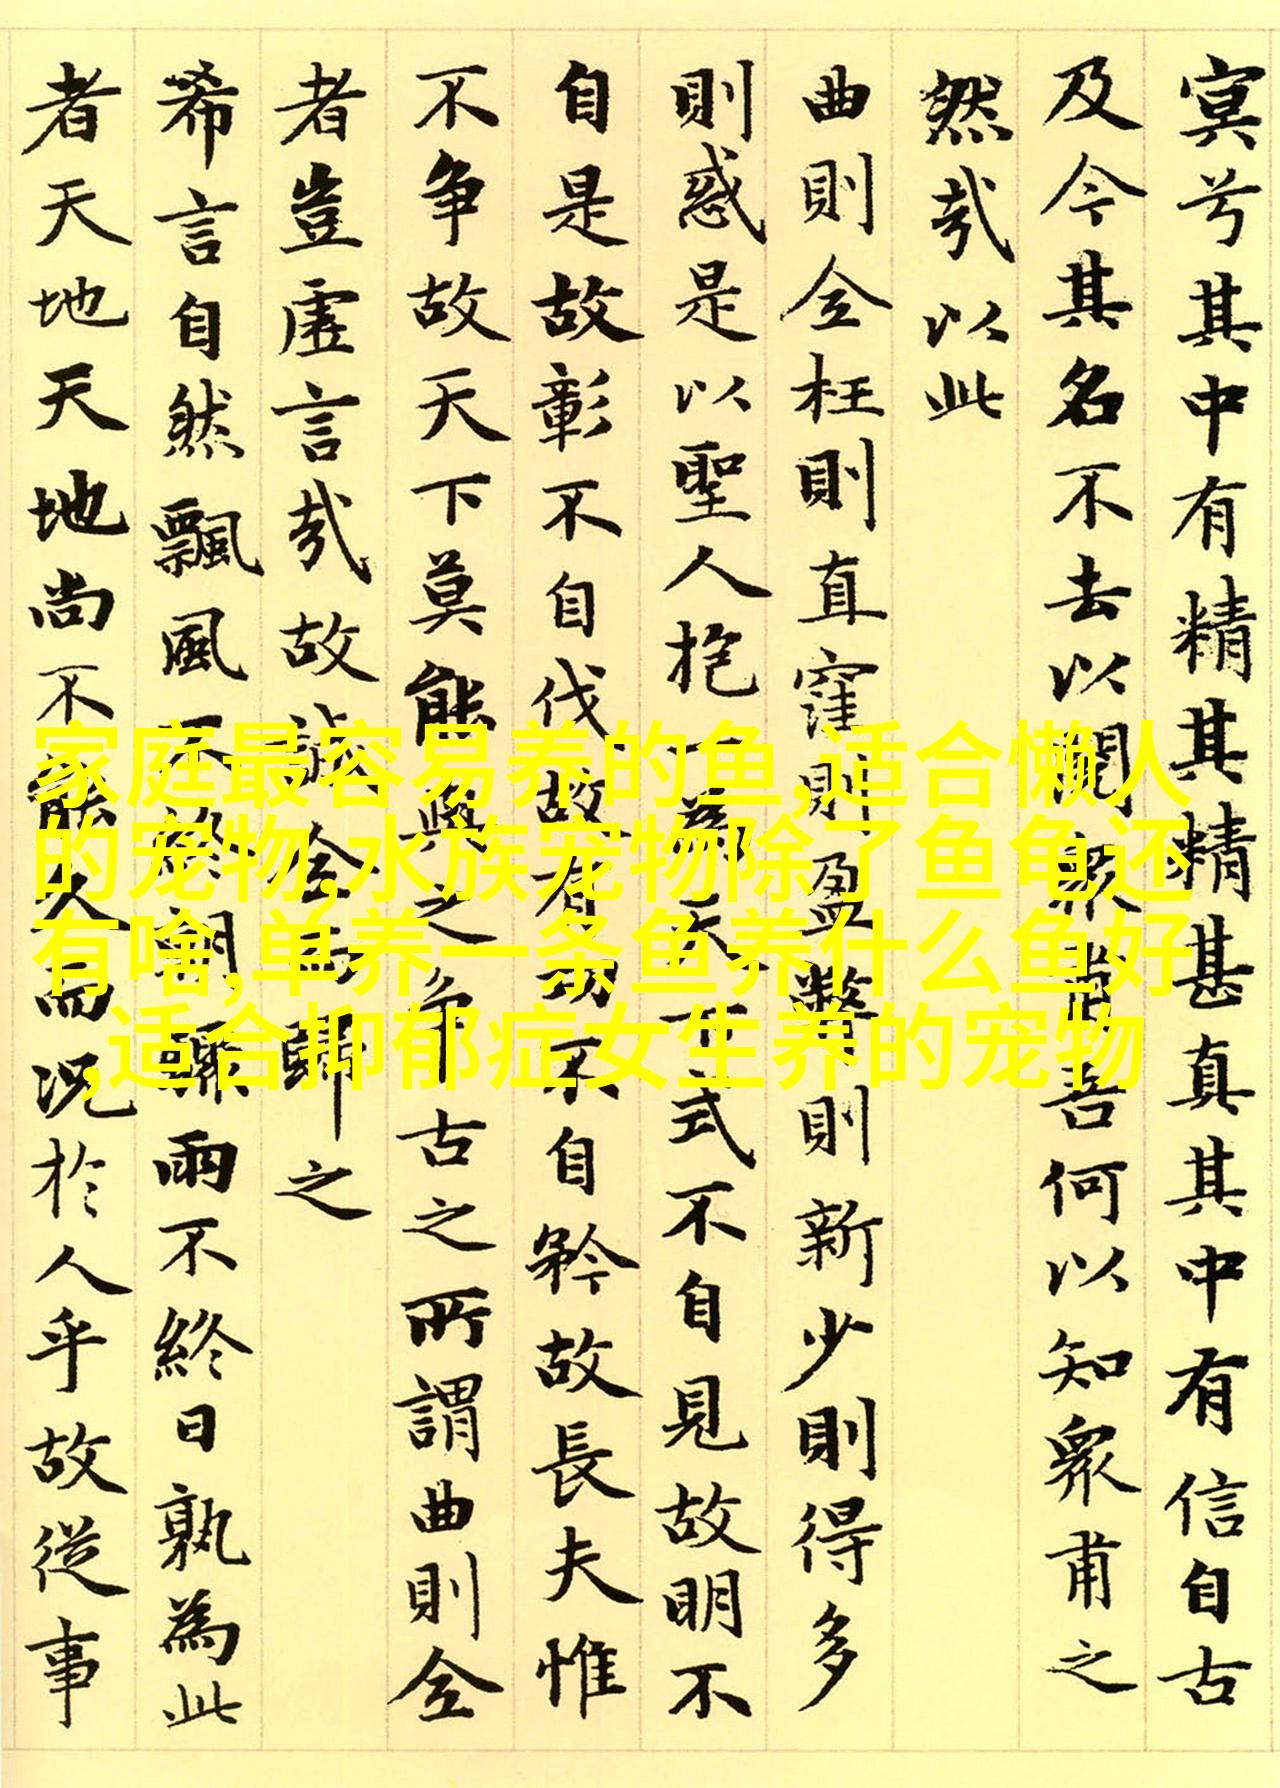 冥兮其中有精其精甚真其中有信自古
及今其名不去以閱眾甫吾何以知眾甫之
然哉以此
曲則全枉則直窪則盈弊則新少則得多
則惑是以聖人抱一為天下式不自見故明不
自是故彰不自伐故有功不自矜故長夫惟
不争故天下莫能與之争古之所謂曲則全
者豈虛言哉故誠全而歸之
希言自然飄風不終朝驟雨不終日孰為此
者天地天地尚不能久而況於人乎故從事
家庭最容易养的鱼,适合懒人
的宠物,水族宠物除了鱼龟还
有啥,单养一条鱼养什么鱼好
,适合抑郁症女生养的宠物